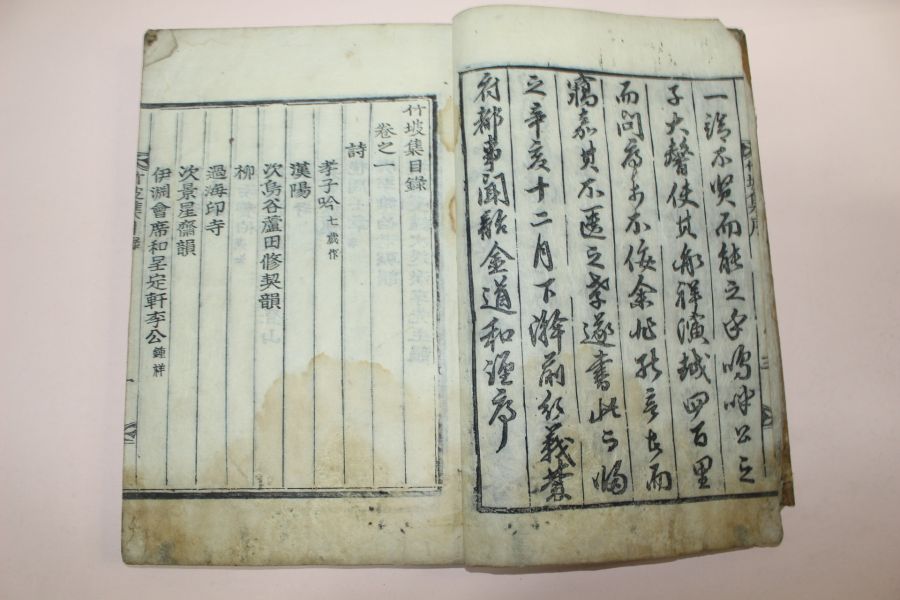 一諾不賢而能之乎嗚呼公之
子大馨使其 祥演越四百里
而問序 不佞余非能言者而
窃嘉其不匱之孝遂書此而歸
之辛亥十二月下澣前行義禁
府都事聞韶金道和謹序
竹坡集目錄
卷之一
詩
孝子吟 七歲作
漢陽
次鳥谷蘆田修契韻
柳
過海印寺
次景星齋韻
伊淵會席和呈定軒李公 鍾祥
竹坡集目錄